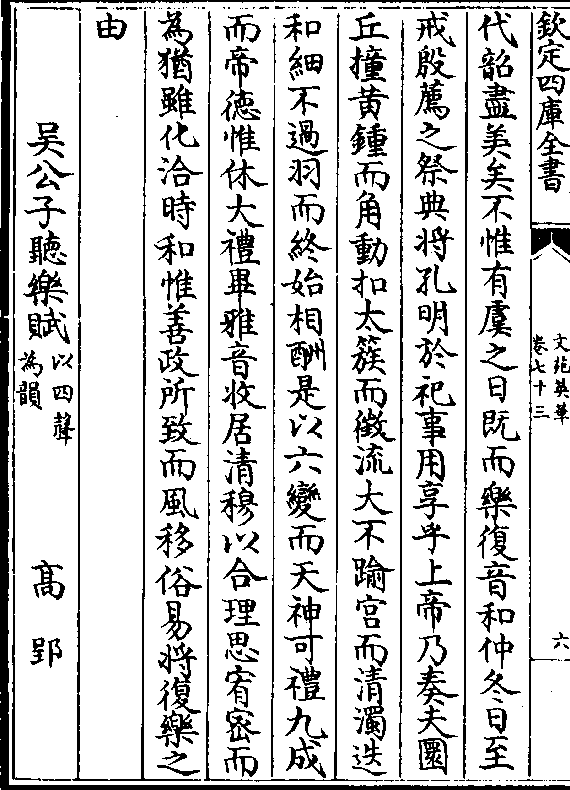 欽定四庫全書
文苑英華
卷七十三
六
代韶盡美矣不惟有虞之日既而樂復音和仲冬日至
戒殷薦之祭典将孔明於祀事用享乎上帝乃奏夫圜
丘撞黄鍾而角動扣太簇而徵流大不踰宫而清濁迭
和細不過羽而終始相酬是以六變而天神可禮九成
而帝徳惟休大禮畢雅音收居清穆以合理思宥宻而
為猶雖化洽時和惟善政所致而風移俗易将復樂之
由
吴公子聽樂賦以四聲為韻 髙郢